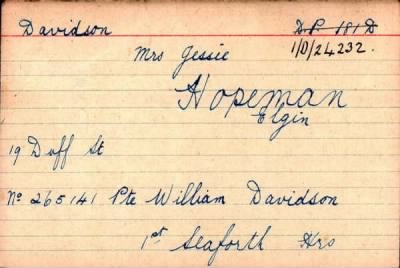 Davidson D.P. 181 D
1/D/24232.
Mrs Jessie
Hopeman
Elgin
19 Duff St
No 265141 Pte William Davidson
1st Seaforth Hrs